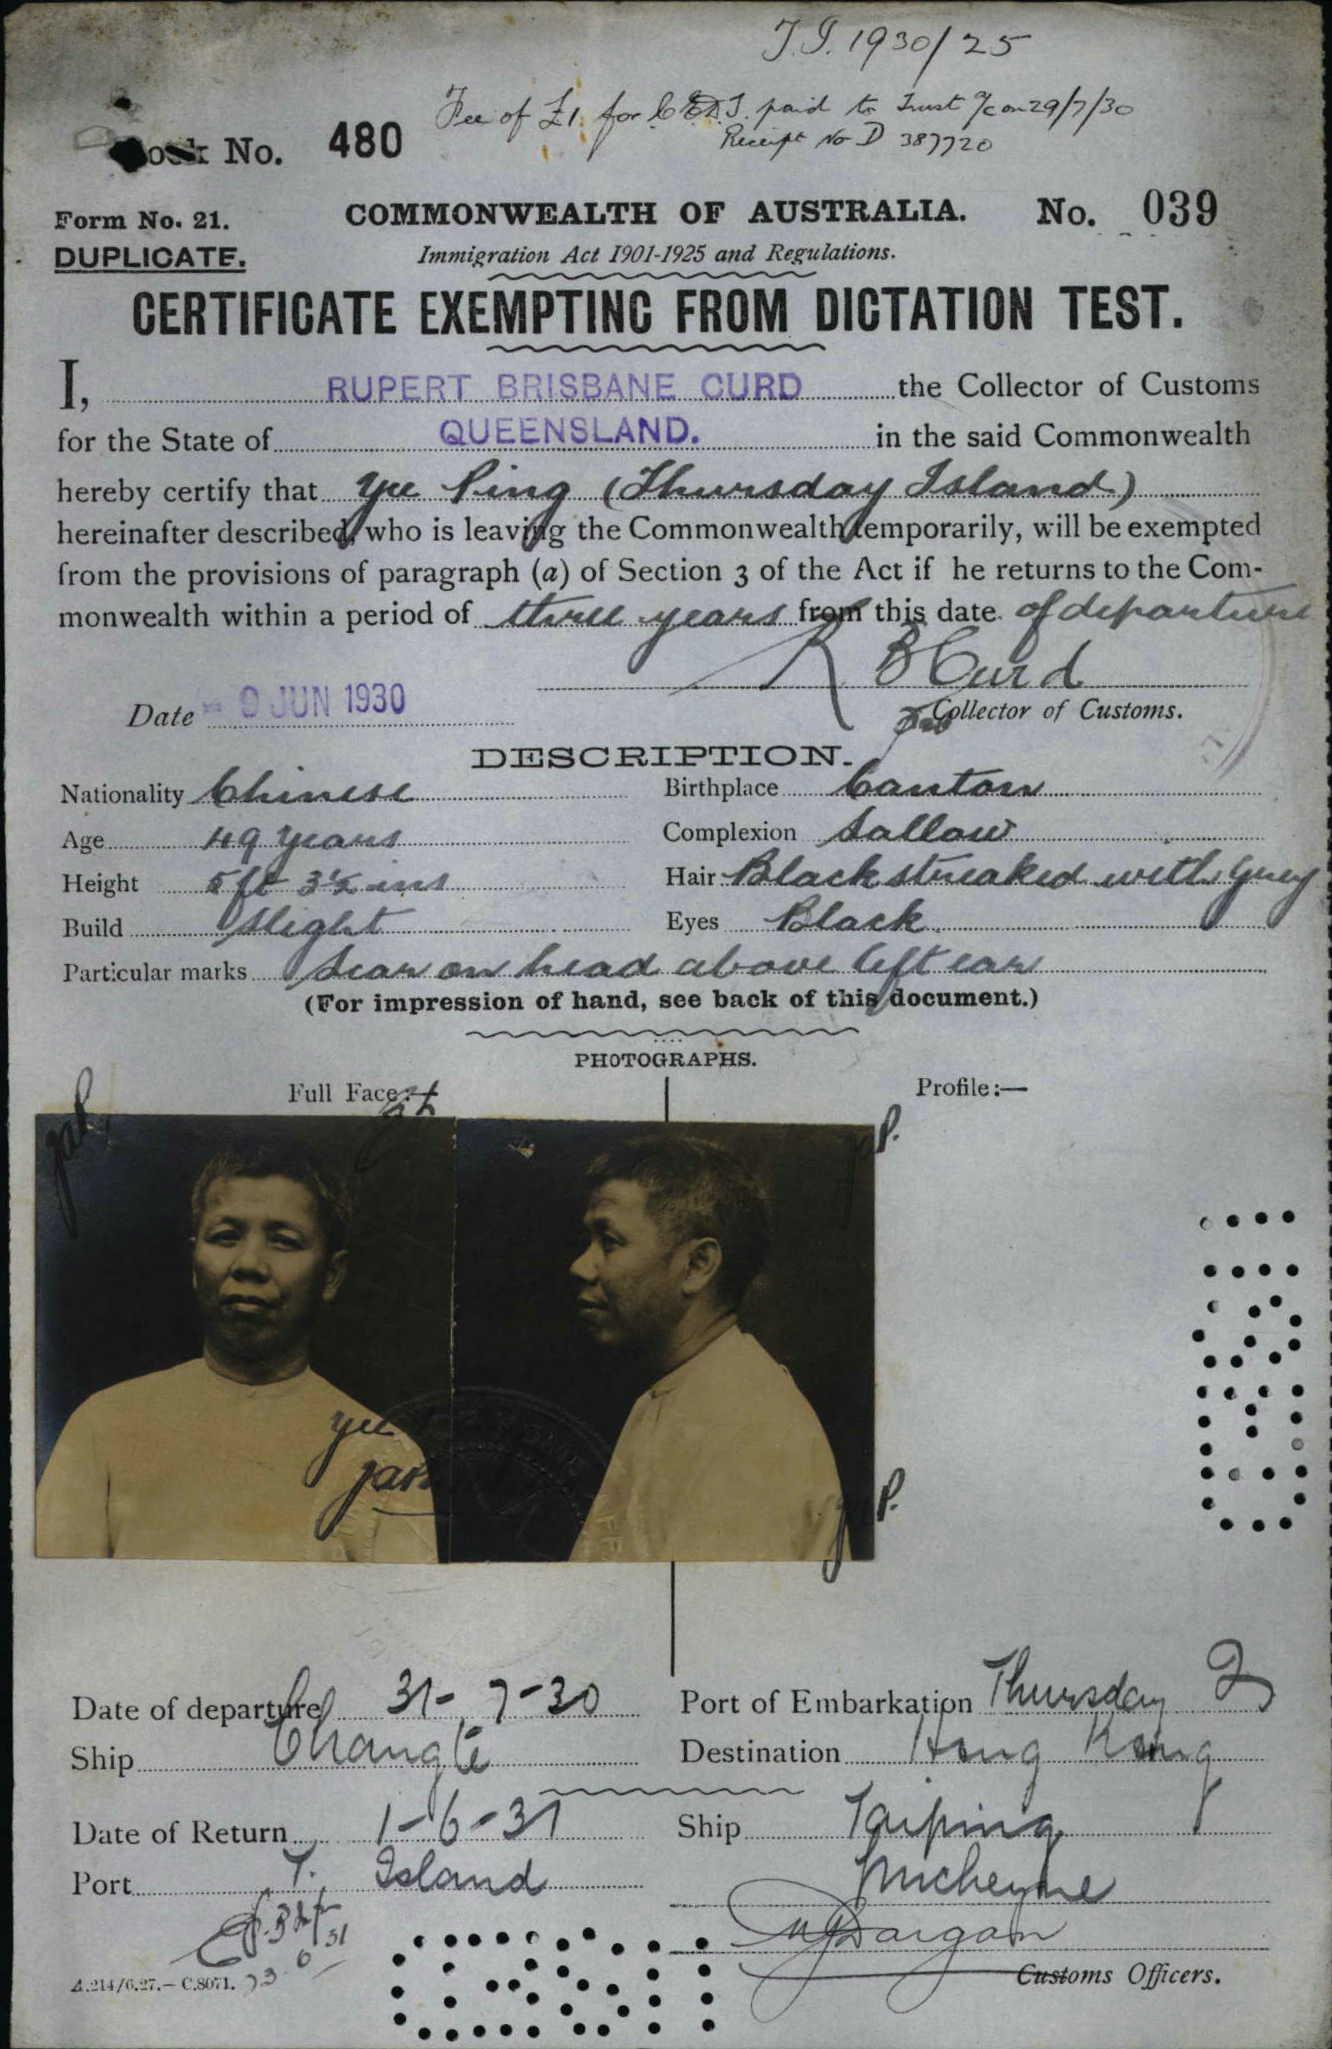 T.I. 1930/25
Fee of £1 for C.E.D.T. paid to Trust a/c on 29/7/30
Receipt No D 387720
Book No. 480
Form No. 21.
COMMONWEALTH OF AUSTRALIA. No. 039
DUPLICATE.
Immigration Act 1901-1925 and Regulations.
CERTIFICATE EXEMPTING FROM DICTATION TEST.
I, RUPERT BRISBANE CURD the Collector of Customs
for the State of QUEENSLAND. in the said Commonwealth
hereby certify that Yee Ping (Thursday Island)
hereinafter described, who is leaving the Commonwealth temporarily, will be exempted
from the provisions of paragraph (a) of Section 3 of the Act if he returns to the Com-
monwealth within a period of three years from this date of departure
R B Curd
Date 9 JUN 1930
Collector of Customs.
DESCRIPTION.
Nationality Chinese Birthplace Canton
Age 49 years Complexion Sallow
Height 5 ft 3½ ins Hair Black streaked with grey
Build Slight Eyes Black
Particular marks Scar on head above left ear
(For impression of hand, see back of this document.)
PHOTOGRAPHS.
Full Face:— Profile:—
Yee
Date of departure 31-7-30 Port of Embarkation Thursday I
Ship Changte Destination Hong Kong
Date of Return 1-6-31 Ship Taiping
Port T. Island
Customs Officers.
A.214/6.27.—C.8071.